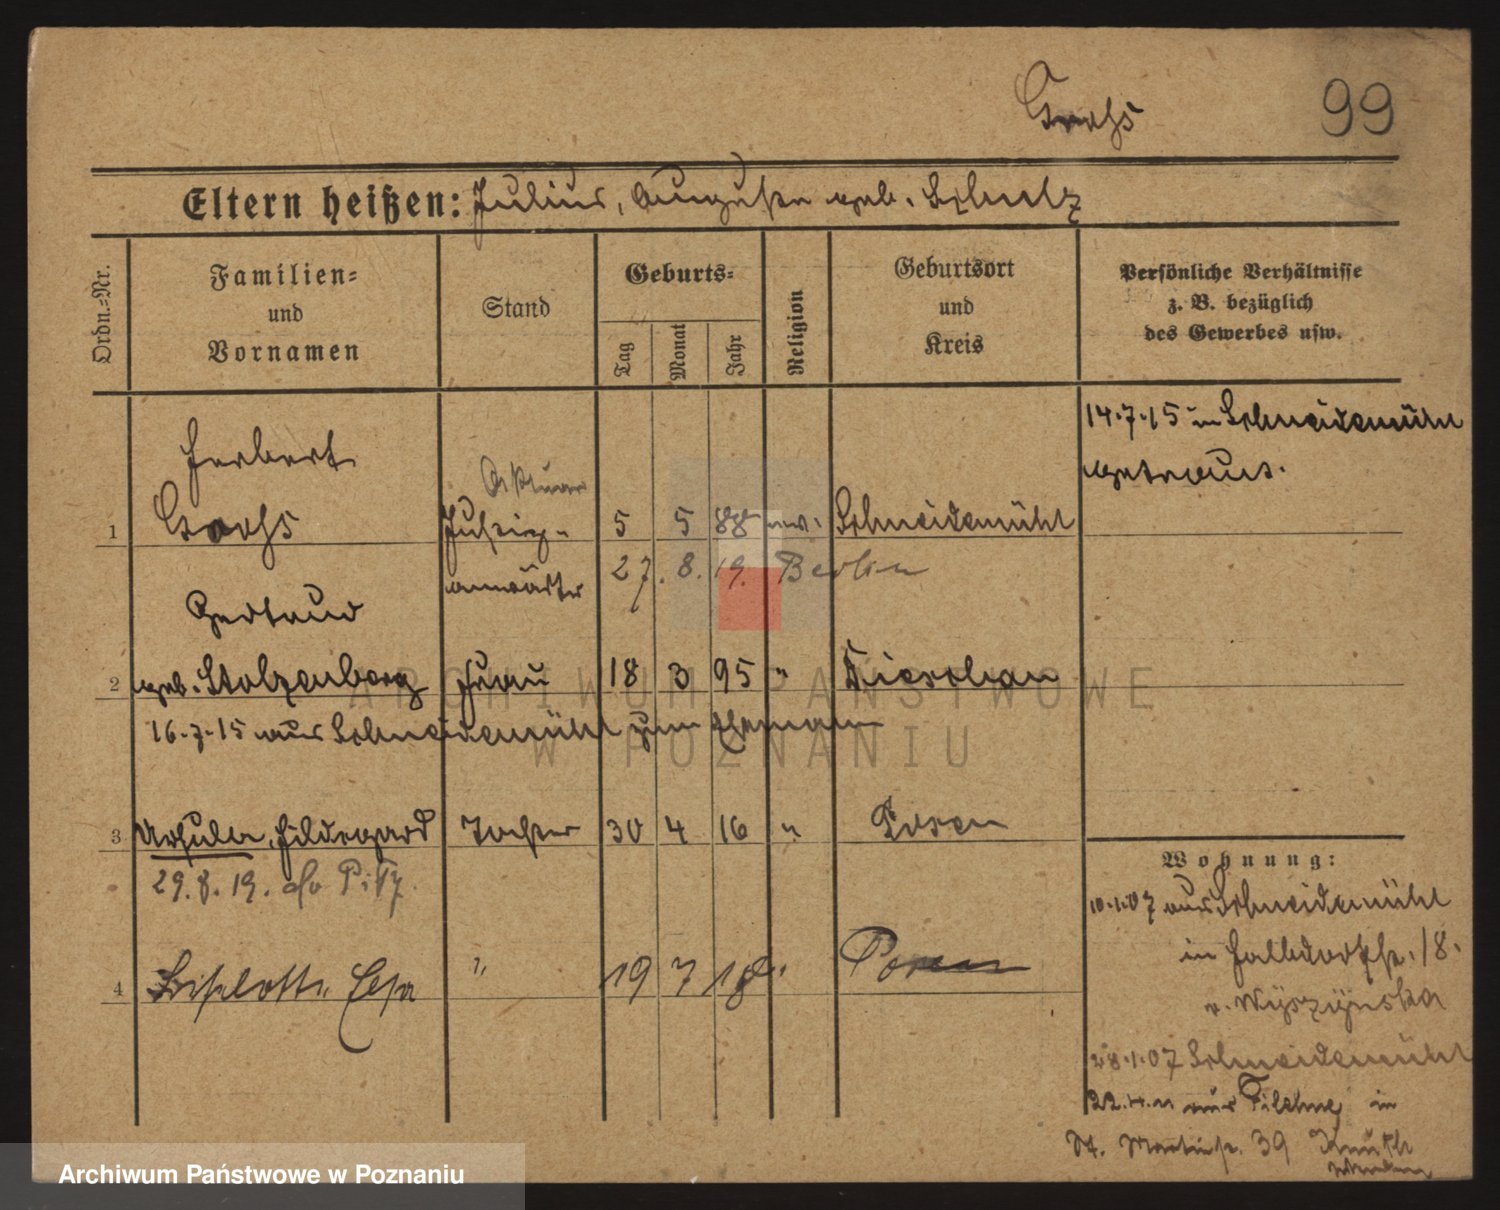 99
Eltern heißen: Julius, Auguste geb. Schulz
Ordn.=Nr.
Familien=
und
Vornamen
Stand
Geburts=
Tag
Monat
Jahr
Religion
Geburtsort
und
Kreis
Persönliche Verhältnisse
z. B. bezüglich
des Gewerbes usw.
14.7.15 in Schneidemühl
getraut.
Herbert
Aktuar
1 Justiz- 5 5 88 ev. Schneidemühl
anwärter 27. 8. 19. Berlin
Gertrud
2 geb. Stolzenberg Frau 18 3 95 "
16.7.15 aus Schneidemühl zum Ehemann
3 Ursula, Hildegard Tochter 30 4 16 " Posen
29.8.19.
4 Liselotte " 19 7 18. Posen
Wohnung:
10.1.07 aus Schneidemühl
in Halbdorfstr. 18.
b. Wyszynska
28.1.07 Schneidemühl
aus Filehne in
St. Martinstr. 39
ARCHIWUM PAŃSTWOWE
W POZNANIU
Archiwum Państwowe w Poznaniu